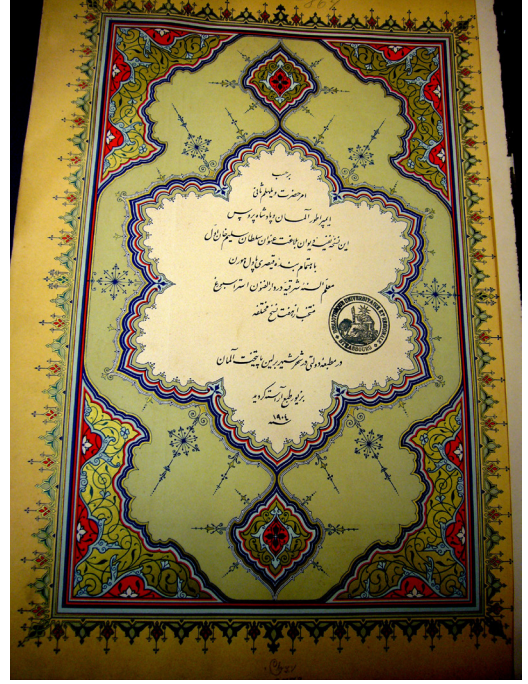 بر حسب
امر حضرت ویلهلم ثانی
ایمپراطور آلمان و پادشاه پروس
این نسخهٔ دیوان بلاغت عنوان سلطان سلیم خان اول
باهتمام بندهٔ قیصری پاول هورن
معلم السنهٔ شرقیه در دار الفنون استراسبورغ
منتخب از هفت نسخ مختلفه
در مطبعهٔ دولتی در شهر شهیر برلین پایتخت آلمان
بزیور طبع آراسته گردید
۱۹۰۴